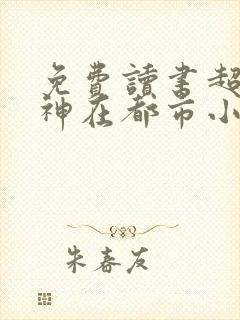 免費讀書超
神在都市小
朱春友